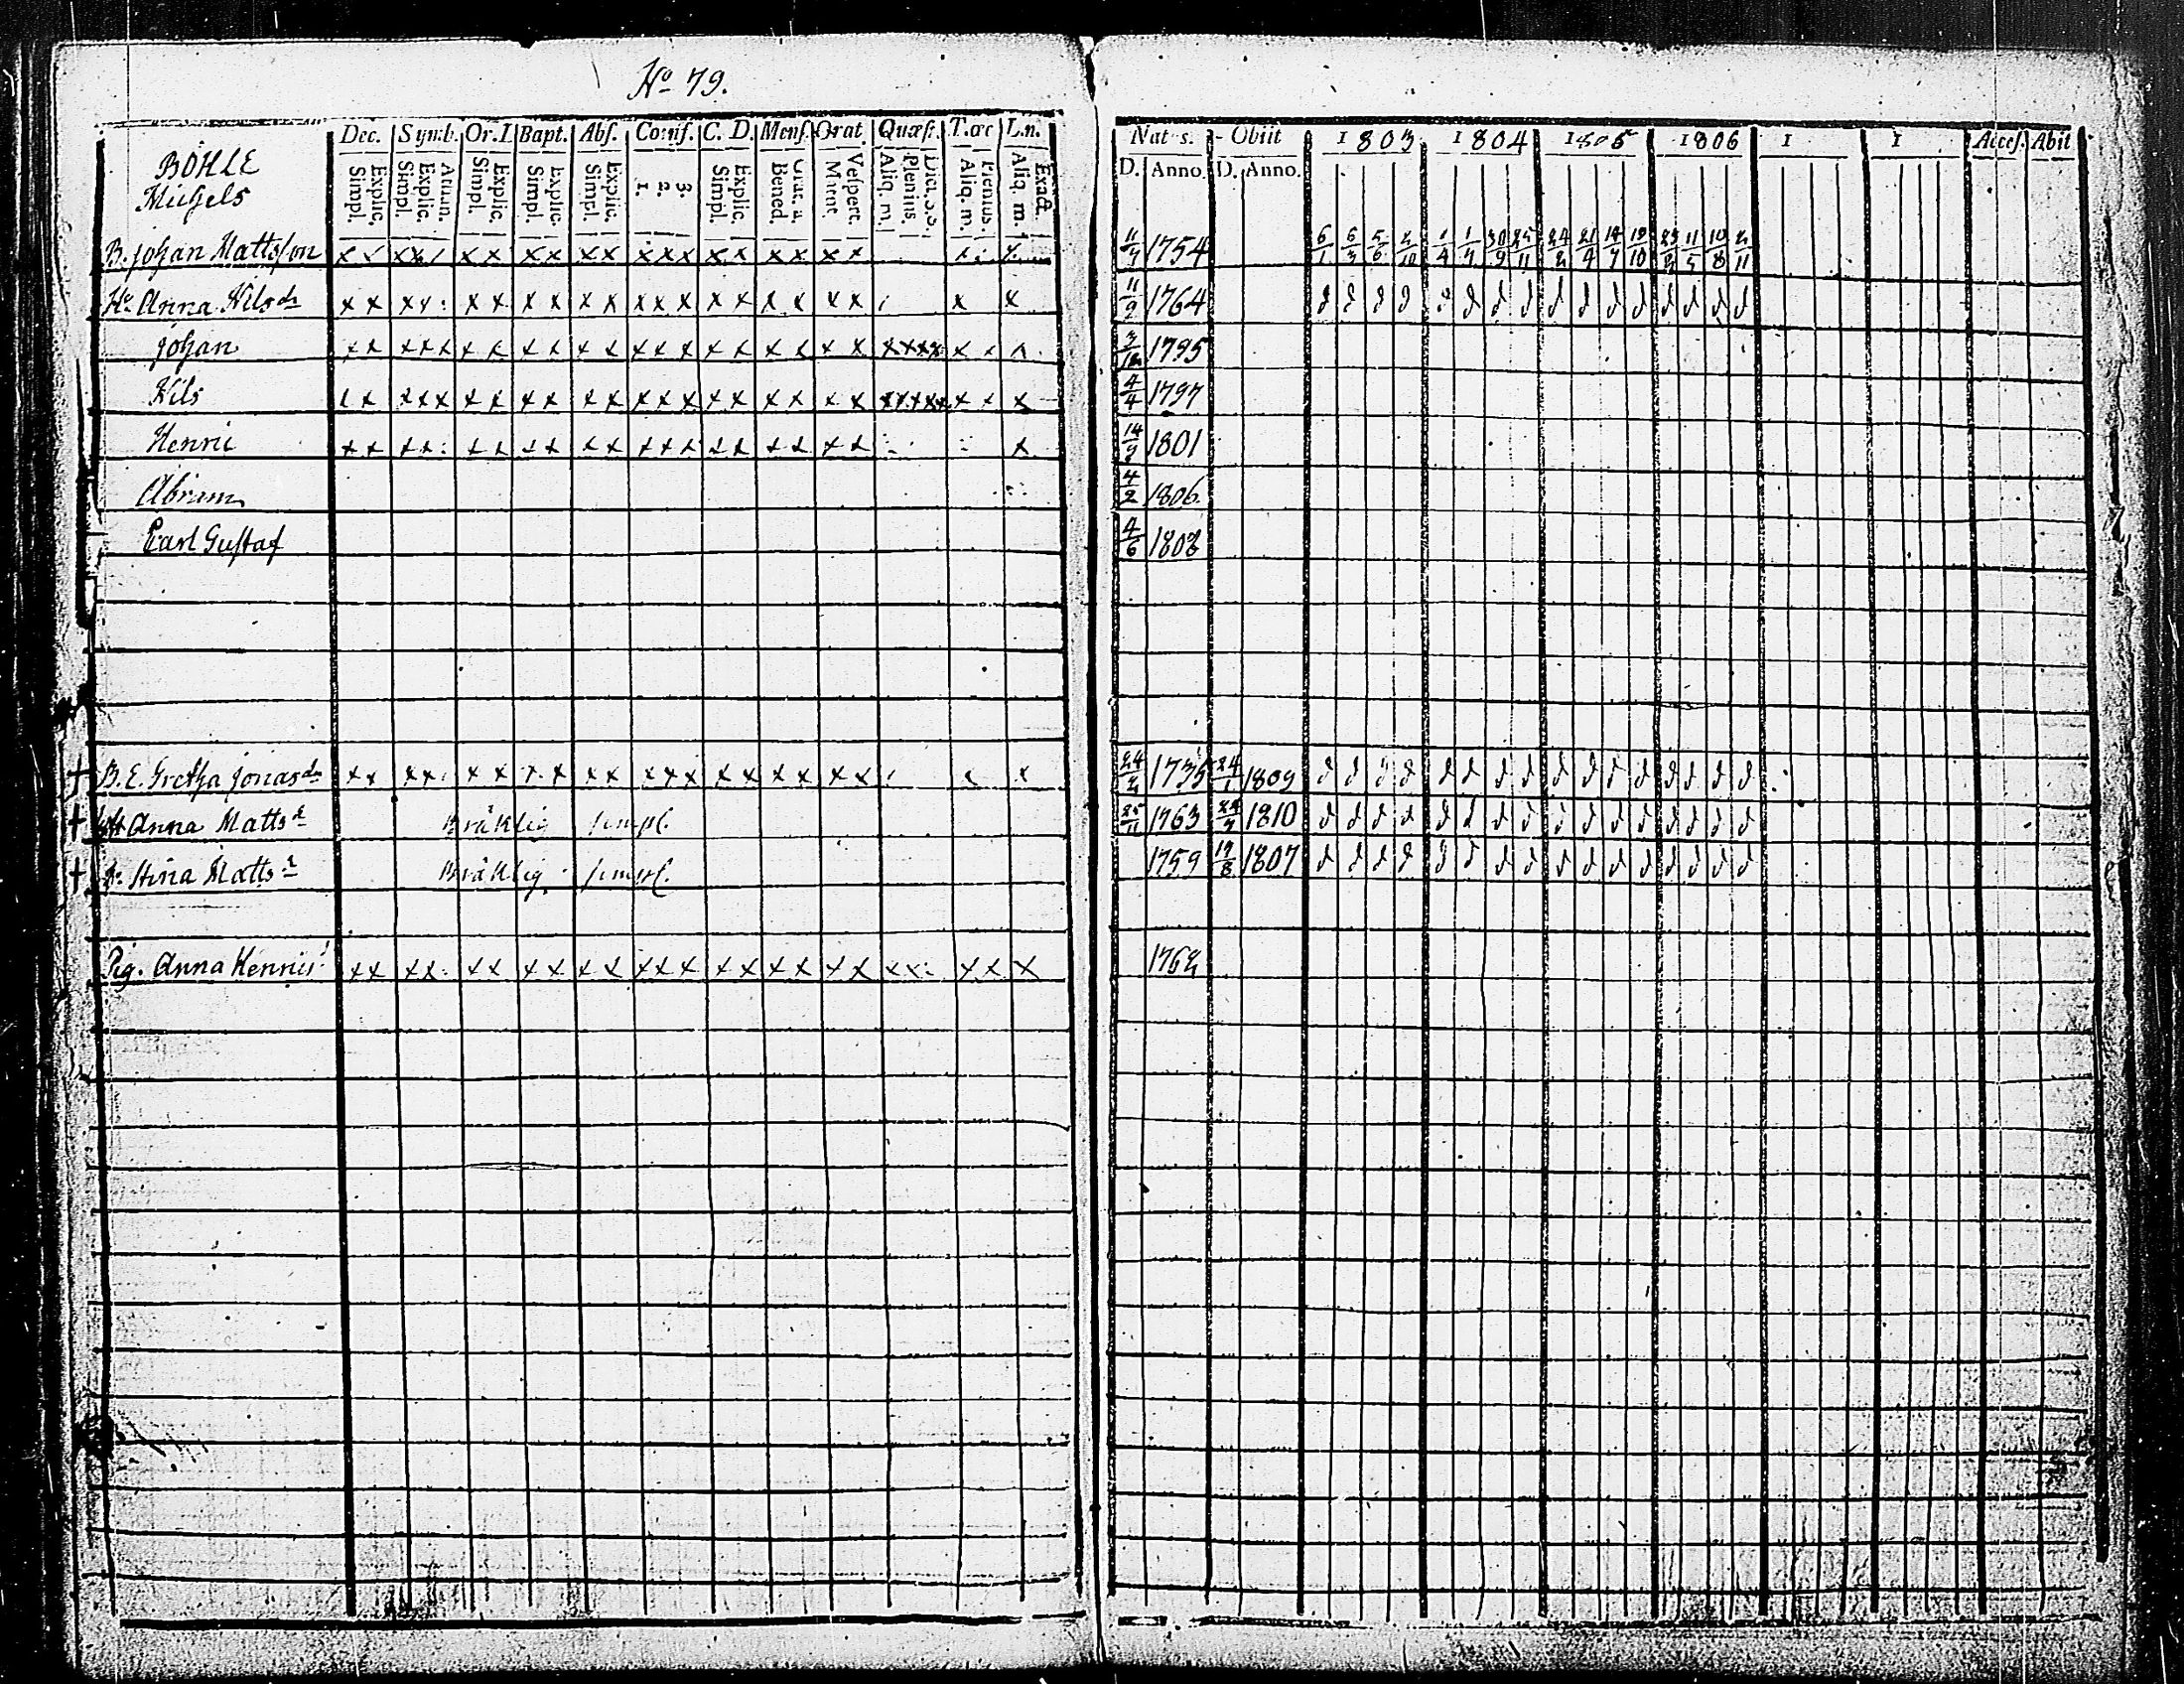 No 79.
Dec. Symb. Or. D Bapt. Abs. Conf. C. D. Mens. Orat. Quæst. T. œc L.n. Nat s. Obiit 1803 1804 1805 1806 1 1 Acces. Abiit
Explic. Simpl. Athan. Explic. Simpl. Explic. Simpl. Explic. Simpl. Explic. Simpl. 3. 2. 1. Explic. Simpl. Grat. a. Bened. Vespert. Matut. Dict. s. s. Plenius. Aliq. m. Plenius. Aliq. m. Exact. Aliq. m. D. Anno. D. Anno.
BÖHLE
Michels
B. Johan Mattsson x x x x x x x x x x x x x x x x x x x 11/7 1754 6/1 6/3 5/6 2/10 1/4 1/7 30/9 25/11 24/2 21/4 14/7 19/10 23/2 11/5 10/8 2/11
Ho Anna Nilsdr x x x x x x x x x x x x x x x x x x x x x 11/9 1764
Johan x x x x x x x x x x x x x x x x x x x x x x x x x x 3/12 1795
Nils x x x x x x x x x x x x x x x x x x x x x x x x x x x x 4/4 1797
Henric x x x x x x x x x x x x x x x x x x x x 14/9 1801
Abram 4/2 1806
Carl Gustaf 4/6 1808
+ B. E. Gretha Jonasdr x x x x x x x x x x x x x x x x x x x x x 24/2 1735 24/1 1809
+ Anna Mattsd Bräklig simpl. 25/11 1763 1810
+ Stina Mattsd Bräklig simpl. 1759 19/8 1807
Pig. Anna Henricsd x x x x x x x x x x x x x x x x x x x x x x x x 1762